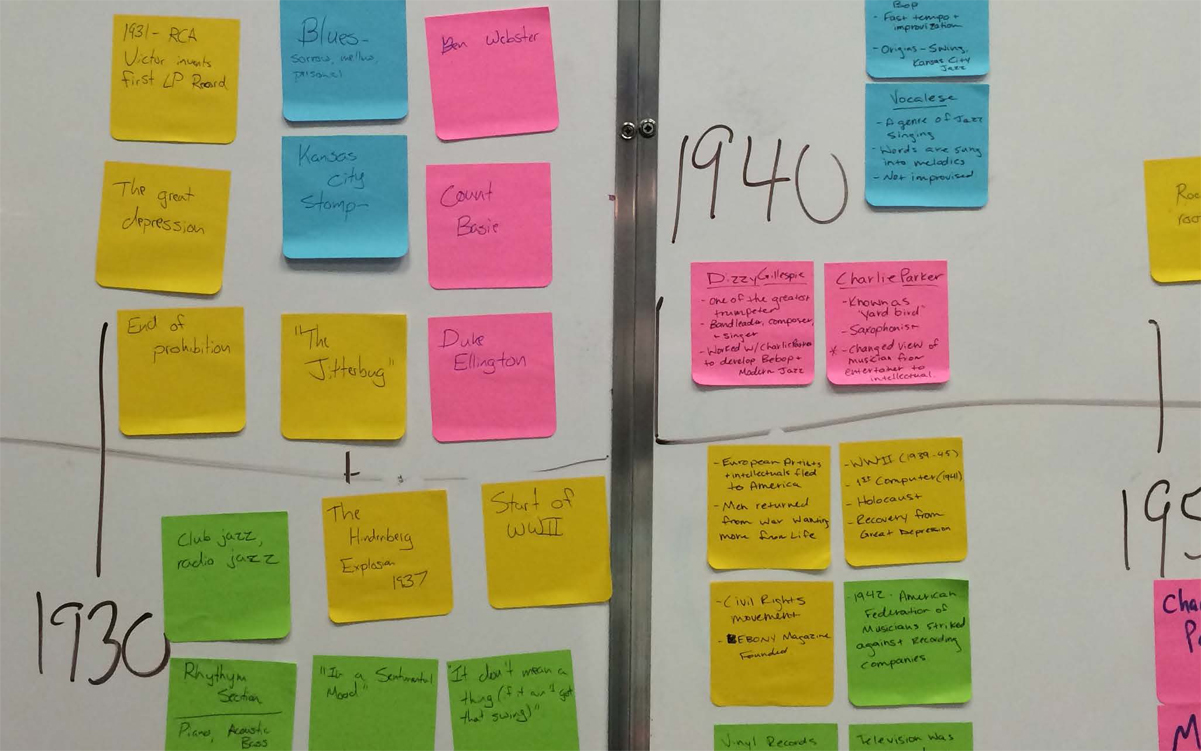 1931- RCA
Victor invents
first LP Record
Blues-
sorrow, mellow,
personal
Ben Webster
The great
depression
Kansas
City
Stomp-
Count
Basie
End of
prohibition
"The
Jitterbug"
Duke
Ellington
Club jazz,
radio jazz
The
Hindenberg
Explosion
1937
Start of
WWII
1930
Rhythym
Section
Piano, Acoustic
Bass
"In a Sentimental
Mood"
"It don't mean a
thing (if it ain't got
that swing)"
Bop
- Fast tempo +
improvization
- Origins - Swing,
Kansas City
Jazz
Vocalese
- A genre of Jazz
singing
- Words are sung
into melodies
- Not improvised
1940
Dizzy Gillespie
- One of the greatest
trumpeter
- Bandleader, composer,
+ singer
- Worked w/Charlie Parker
to develop Bebop +
Modern Jazz
Charlie Parker
- Known as
"Yard bird"
- Saxophonist
* - Changed view of
musician from
entertainer to
intellectual
- European Artists
+ intellectuals fled
to America
- Men returned
from war wanting
more from Life
- WWII (1939-45)
- 1st Computer (1941)
- Holocaust
- Recovery from
Great Depression
- Civil Rights
movement
- EBONY Magazine
Founded
- 1942 - American
Federation of
Musicians striked
against Recording
companies
Vinyl Records
Television was
195
Cha
P
M